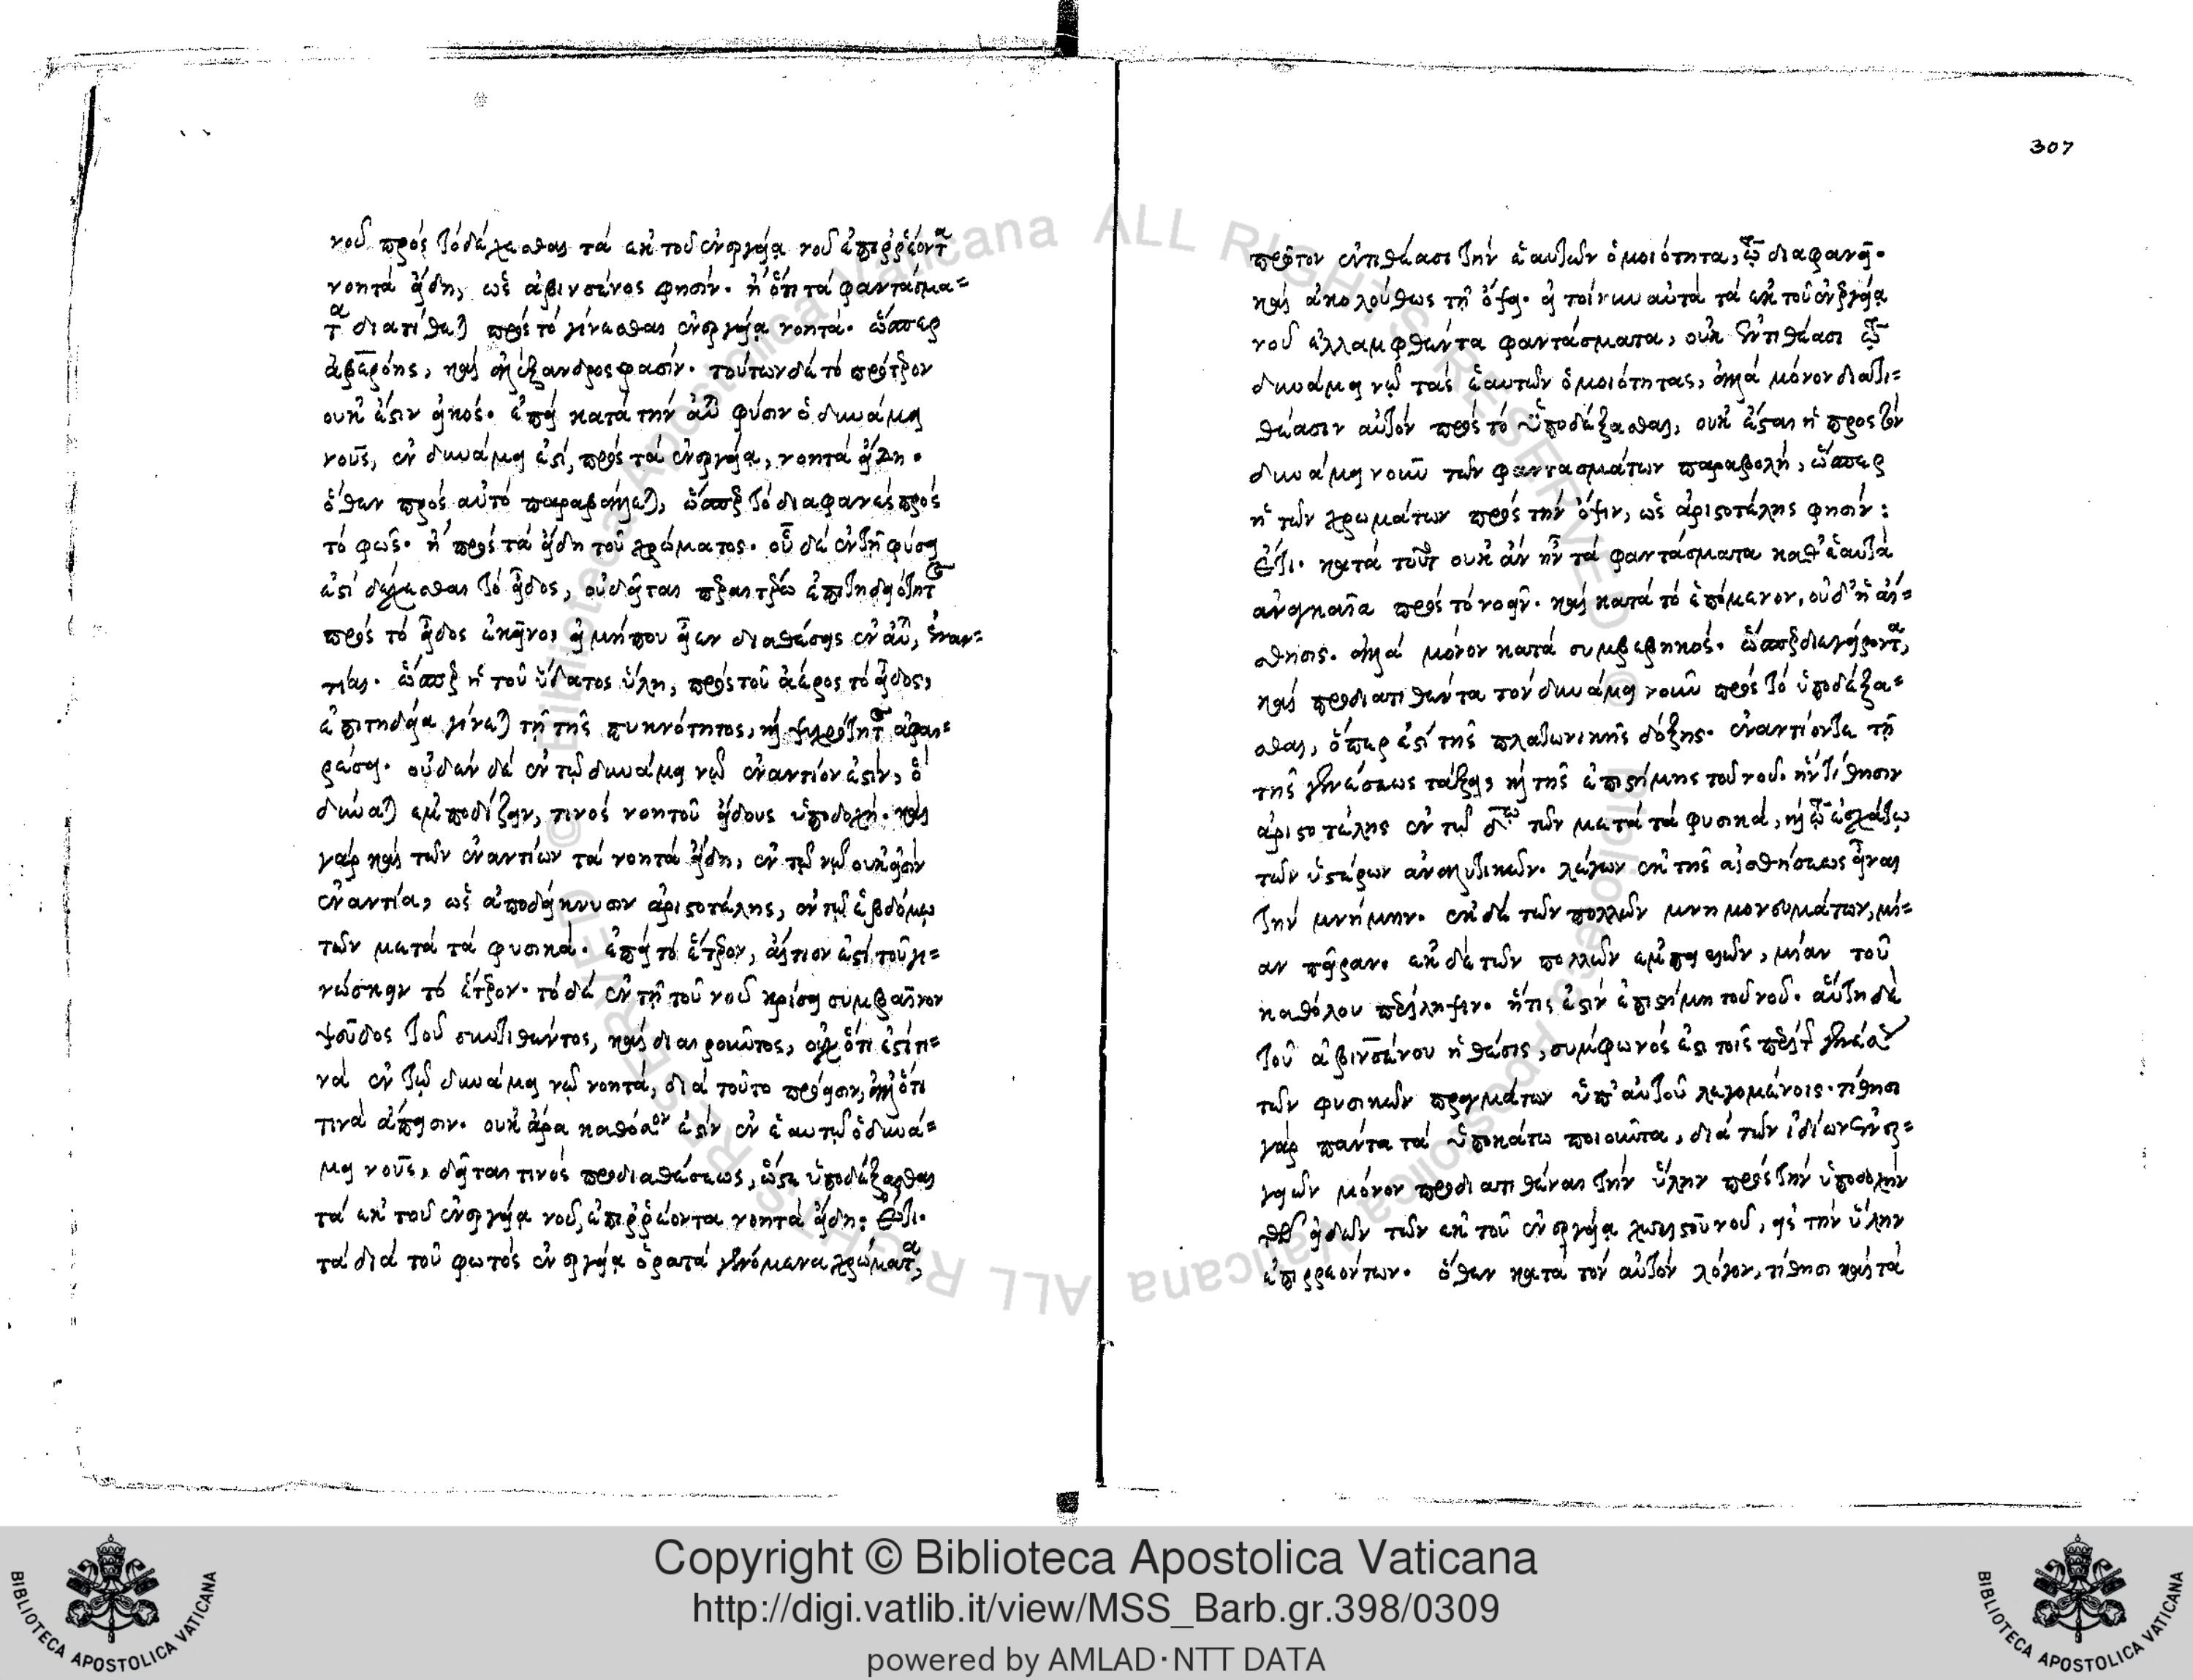 νοῦ πρὸς τὸ δέχεσθαι τὰ ἐκ τοῦ ἐνεργείᾳ νοῦ ἐπιῤῥέοντα
νοητὰ εἴδη, ὡς ἀβινσένος φησίν. ἢ ὅτι τὰ φαντάσμα=
τα διατίθεται πρὸς τὸ γίνεσθαι ἐνεργείᾳ νοητά. ὥσπερ
ἀβερόης, καὶ ἀλέξανδρος φασίν. τούτων δὲ τὸ πρότερον
οὐκ ἔστιν εἰκός. ἐπεὶ κατὰ τὴν αὐτοῦ φύσιν ὁ δυνάμει
νοῦς, ἐν δυνάμει ἐστὶ, πρὸς τὰ ἐνεργείᾳ, νοητὰ εἴδη.
ὅθεν πρὸς αὐτὸ παραβάλλεται, ὥσπερ τὸ διαφανὲς πρὸς
τὸ φῶς. ἢ πρὸς τὰ εἴδη τοῦ χρώματος. οὗ δὲ ἐν τῇ φύσει
ἐστὶ δέχεσθαι τὸ εἶδος, οὐ δεῖται περαιτέρω ἐπιτηδειότητος
πρὸς τὸ εἶδος ἐκεῖνο, εἰ μήπου εἶεν διαθέσεις ἐν αὐτῷ, ἐναν=
τίαι. ὥσπερ ἡ τοῦ ὕδατος ὕλη, πρὸς τοῦ ἀέρος τὸ εἶδος,
ἐπιτηδεία γίνεται τῇ τῆς πυκνότητος, καὶ ψυχρότητος ἀφαι=
ρέσει. οὐδὲν δὲ ἐν τῷ δυνάμει νῷ ἐναντίον ἐστὶν, ὃ
δύναται ἐμποδίζειν, τινὸς νοητοῦ εἴδους ὑποδοχή. καὶ
γὰρ καὶ τῶν ἐναντίων τὰ νοητὰ εἴδη, ἐν τῷ νῷ οὐκ εἰσὶν
ἐναντία, ὡς ἀποδείκνυσιν ἀριστοτέλης, ἐν τῷ ἑβδόμῳ
τῶν μετὰ τὰ φυσικά. ἐπεὶ τὸ ἕτερον, αἴτιον ἐστὶ τοῦ γι=
νώσκειν τὸ ἕτερον. τὸ δὲ ἐν τῇ τοῦ νοῦ κρίσει συμβαῖνον
ψεῦδος τοῦ συντιθέντος, καὶ διαιροῦντος, οὐχ ὅτι ἐστί τι=
νὰ ἐν τῷ δυνάμει νῷ νοητὰ, διὰ τοῦτο πρόεισιν, ἀλλ' ὅτι
τινὰ ἄπεισιν. οὐκ ἄρα καθόσον ἐστὶν ἐν ἑαυτῷ ὁ δυνά=
μει νοῦς, δεῖται τινὸς προδιαθέσεως, ὥστε ὑποδέξασθαι
τὰ ἐκ τοῦ ἐνεργείᾳ νοῦ, ἐπιῤῥέοντα νοητὰ εἴδη: Ἔτι.
τὰ διὰ τοῦ φωτὸς ἐνεργείᾳ ὁρατὰ γενόμενα χρώματα,
307
πρῶτον ἐντιθέασι τὴν ἑαυτῶν ὁμοιότητα, τῷ διαφανεῖ.
καὶ ἀκολούθως τῇ ὄψει. εἰ τοίνυν αὐτὰ τὰ ἐκ τοῦ ἐνεργείᾳ
νοῦ ἐλλαμφθέντα φαντάσματα, οὐκ ἐντιθέασι τῷ
δυνάμει νῷ τὰς ἑαυτῶν ὁμοιότητας, ἀλλὰ μόνον διατι=
θέασιν αὐτὸν πρὸς τὸ ὑποδέξασθαι, οὐκ ἔσται ἡ πρὸς τὸν
δυνάμει νοῦν τῶν φαντασμάτων παραβολὴ, ὥσπερ
ἡ τῶν χρωμάτων πρὸς τὴν ὄψιν, ὡς ἀριστοτέλης φησίν:
Ἔτι. κατὰ τοῦτο οὐκ ἂν ἦν τὰ φαντάσματα καθ' ἑαυτὰ
ἀναγκαῖα πρὸς τὸ νοεῖν. καὶ κατὰ τὸ ἑπόμενον, οὐδ' ἡ αἴ=
σθησις. ἀλλὰ μόνον κατὰ συμβεβηκός. ὥσπερ διεγείροντα,
καὶ προδιατιθέντα τὸν δυνάμει νοῦν πρὸς τὸ ὑποδέξα=
σθαι, ὅπερ ἐστὶ τῆς πλατωνικῆς δόξης. ἐναντίον τε τῇ
τῆς γενέσεως τάξει, καὶ τῆς ἐπιστήμης τοῦ νοῦ. ἣν τίθησιν
ἀριστοτέλης ἐν τῷ δῳ τῶν μετὰ τὰ φυσικὰ, καὶ τῷ ἐσχάτῳ
τῶν ὑστέρων ἀναλυτικῶν. λέγων ἐκ τῆς αἰσθήσεως εἶναι
τὴν μνήμην. ἐκ δὲ τῶν πολλῶν μνημονευμάτων, μί=
αν πεῖραν. ἐκ δὲ τῶν πολλῶν ἐμπειριῶν, μίαν τοῦ
καθόλου περίληψιν. ἥτις ἐστὶν ἐπιστήμη τοῦ νοῦ. αὕτη δὲ
τοῦ ἀβινσένου ἡ θέσις, σύμφωνός ἐστι τοῖς περὶ τῆς γενέσεως
τῶν φυσικῶν πραγμάτων ὑπ' αὐτοῦ λεγομένοις. τίθησι
γὰρ πάντα τὰ ὑποκάτω ποιοῦντα, διὰ τῶν ἰδίων ἐνερ=
γειῶν μόνον προδιατιθέναι τὴν ὕλην πρὸς τὴν ὑποδοχὴν
τῶν εἰδῶν τῶν ἐκ τοῦ ἐνεργείᾳ χωριστοῦ νοῦ, εἰς τὴν ὕλην
ἐπιρρεόντων. ὅθεν κατὰ τὸν αὐτὸν λόγον, τίθησι καὶ τὰ
Copyright © Biblioteca Apostolica Vaticana
http://digi.vatlib.it/view/MSS_Barb.gr.398/0309
powered by AMLAD·NTT DATA